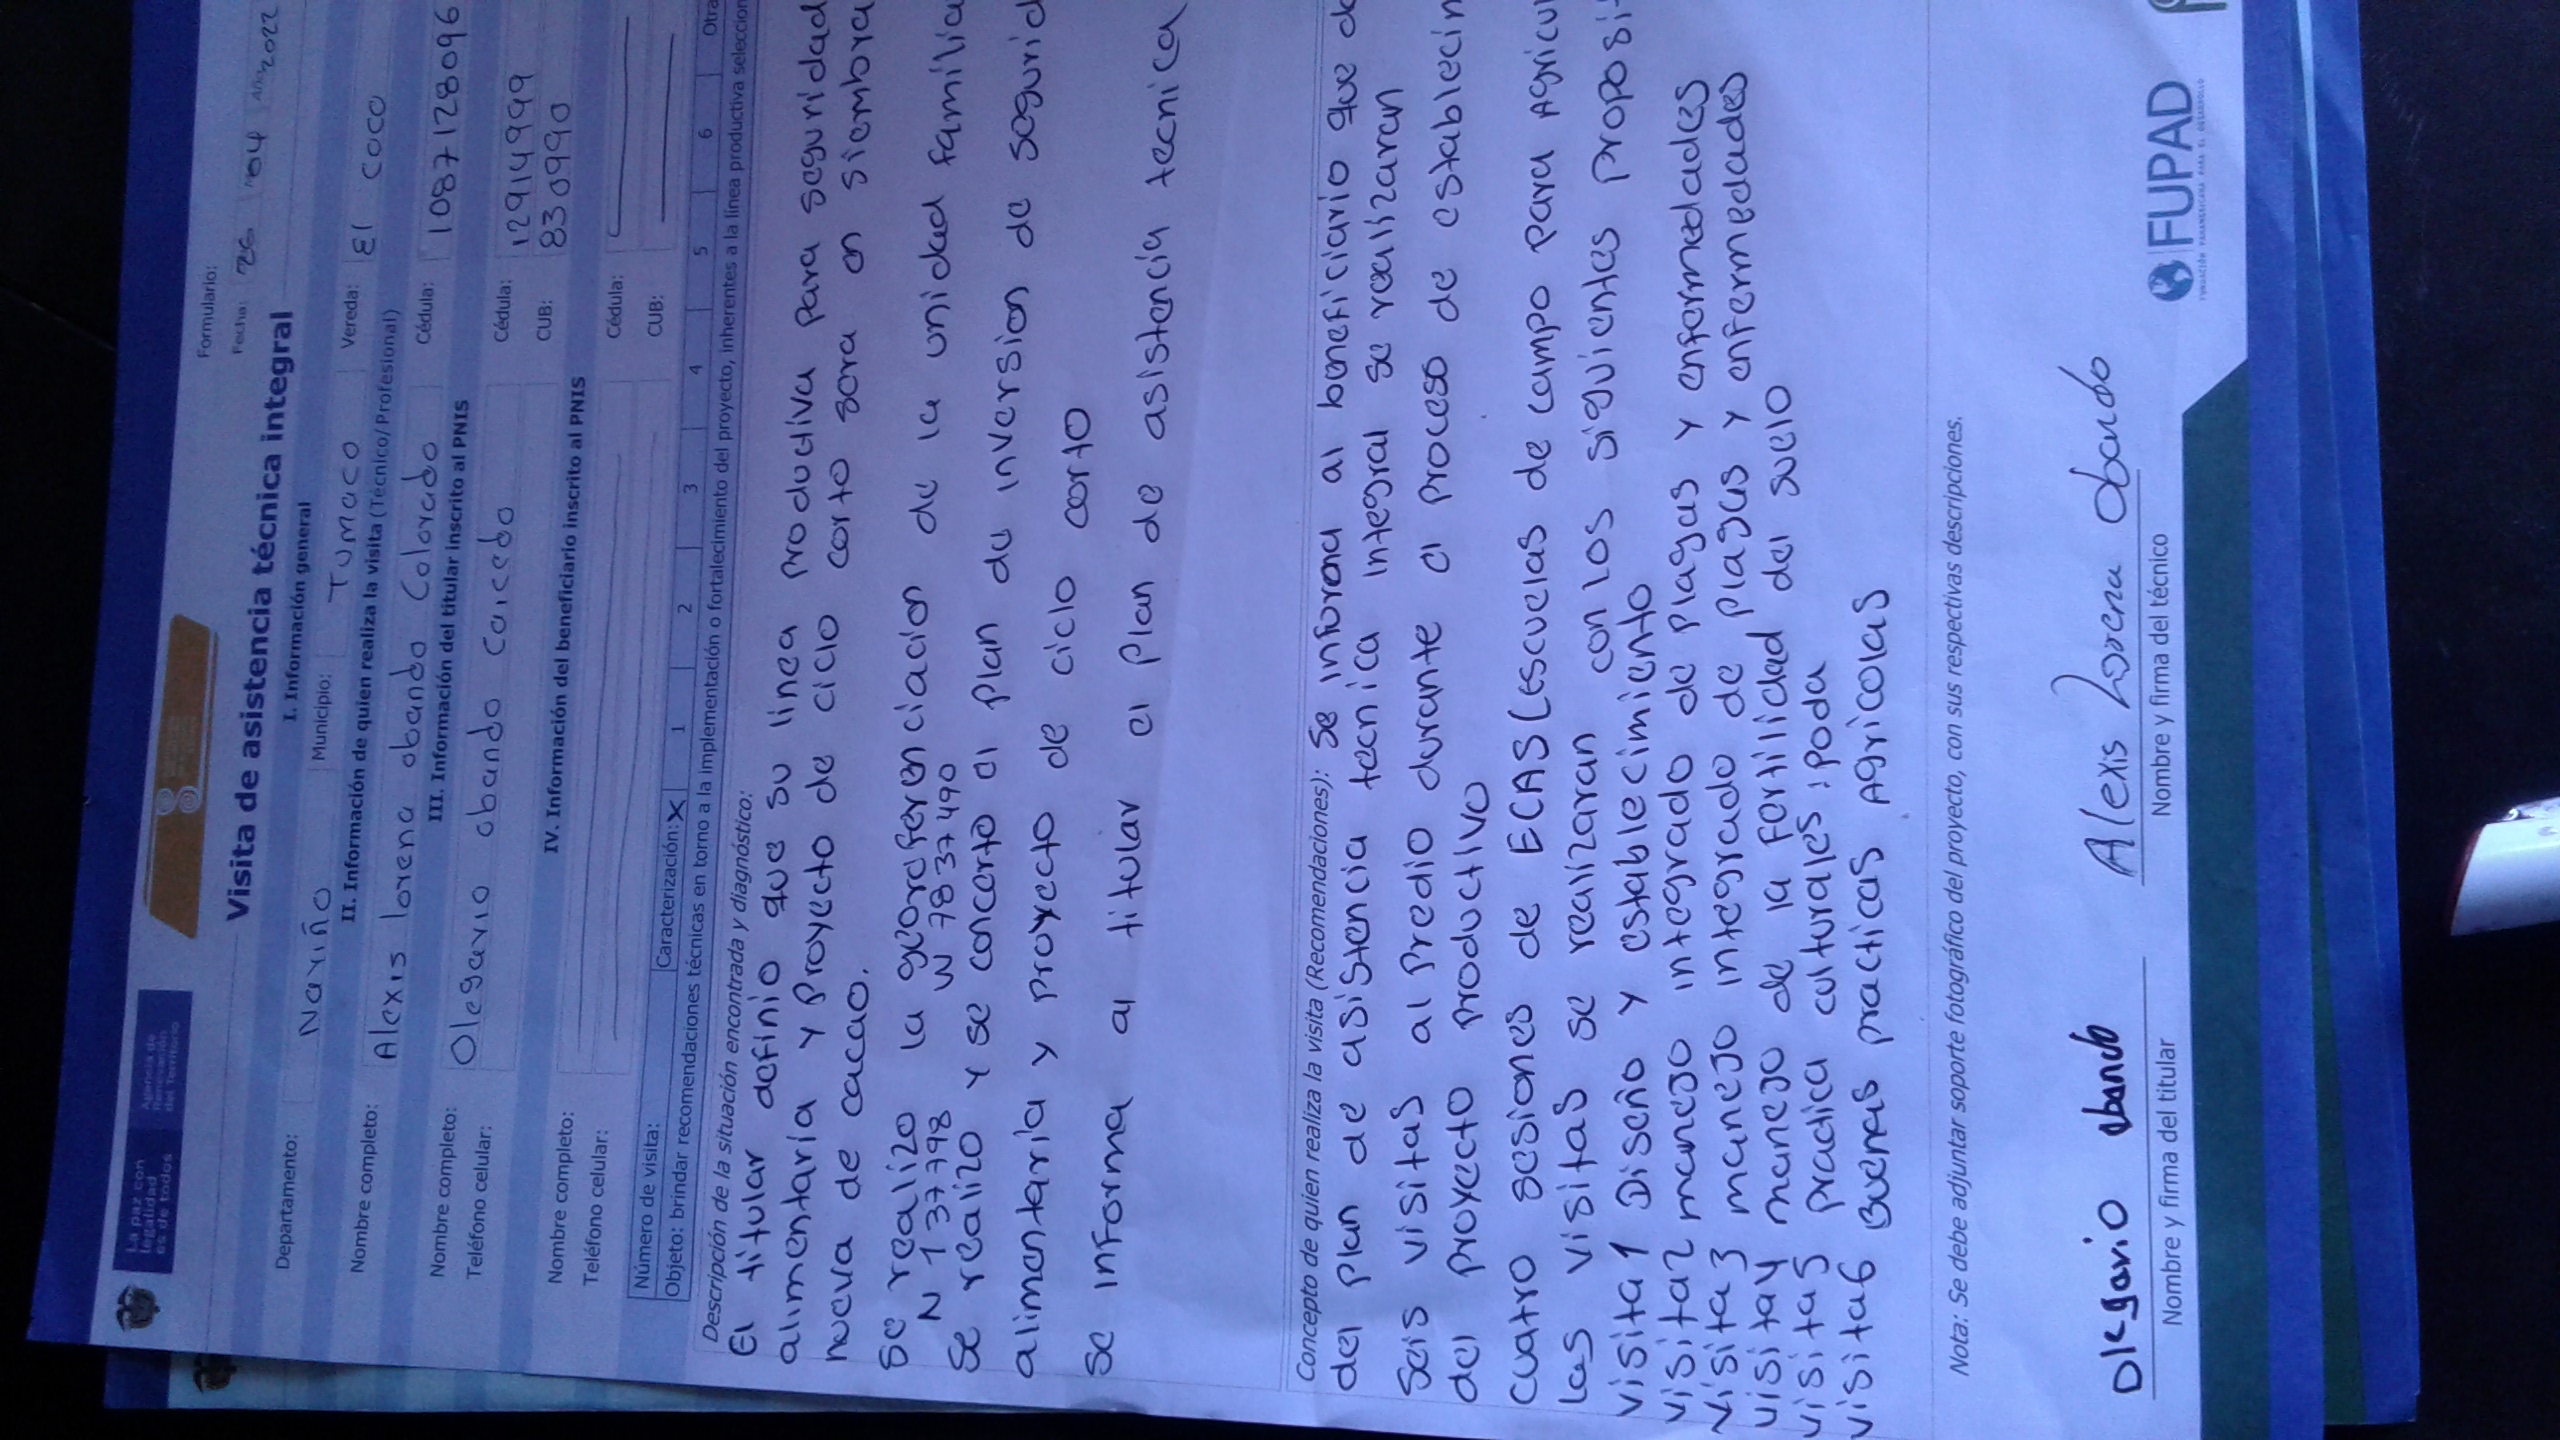 La paz con
legalidad
es de todos
Agencia de
Renovación
del Territorio
Formulario:
Fecha: 26 04 Año 2022
Visita de asistencia técnica integral
I. Información general
Departamento: Nariño Municipio: Tumaco Vereda: El coco
II. Información de quien realiza la visita (Técnico/Profesional)
Nombre completo: Alexis lorena obando Colorado Cédula: 1087128096
III. Información del titular inscrito al PNIS
Nombre completo: Olegario obando caicedo Cédula: 12914999
Teléfono celular: CUB: 830990
IV. Información del beneficiario inscrito al PNIS
Nombre completo: Cédula:
Teléfono celular: CUB:
Número de visita: Caracterización: X 1 2 3 4 5 6 Otra
Objeto: brindar recomendaciones técnicas en torno a la implementación o fortalecimiento del proyecto, inherentes a la línea productiva seleccion
Descripción de la situación encontrada y diagnóstico:
El titular definio que su linea productiva para seguridad
alimentaria y proyecto de ciclo corto sera en siembra
nueva de cacao.
Se realizo la georeferenciacion de la unidad familia
N 137798 W 7837490
Se realizo y se concerto el plan de inversion de segurid
alimentaria y proyecto de ciclo corto
Se informa al titular el plan de asistencia tecnica
Concepto de quien realiza la visita (Recomendaciones): Se informa al beneficiario que de
del plan de asistencia tecnica integral se realizaran
Seis visitas al predio durante el proceso de establecim
del proyecto productivo
cuatro sesiones de ECAS (escuelas de campo para Agricul
las visitas se realizaran con los siguientes proposit
visita 1 Diseño y establecimiento
visita 2 manejo integrado de plagas y enfermedades
visita 3 manejo integrado de plagas y enfermedades
visita 4 manejo de la fertilidad del suelo
visita 5 practica culturales: poda
visita 6 Buenas practicas Agricolas
Nota: Se debe adjuntar soporte fotográfico del proyecto, con sus respectivas descripciones.
Olegario obando Alexis Lorena Obando
Nombre y firma del titular Nombre y firma del técnico
FUPAD
FUNDACIÓN PANAMERICANA PARA EL DESARROLLO